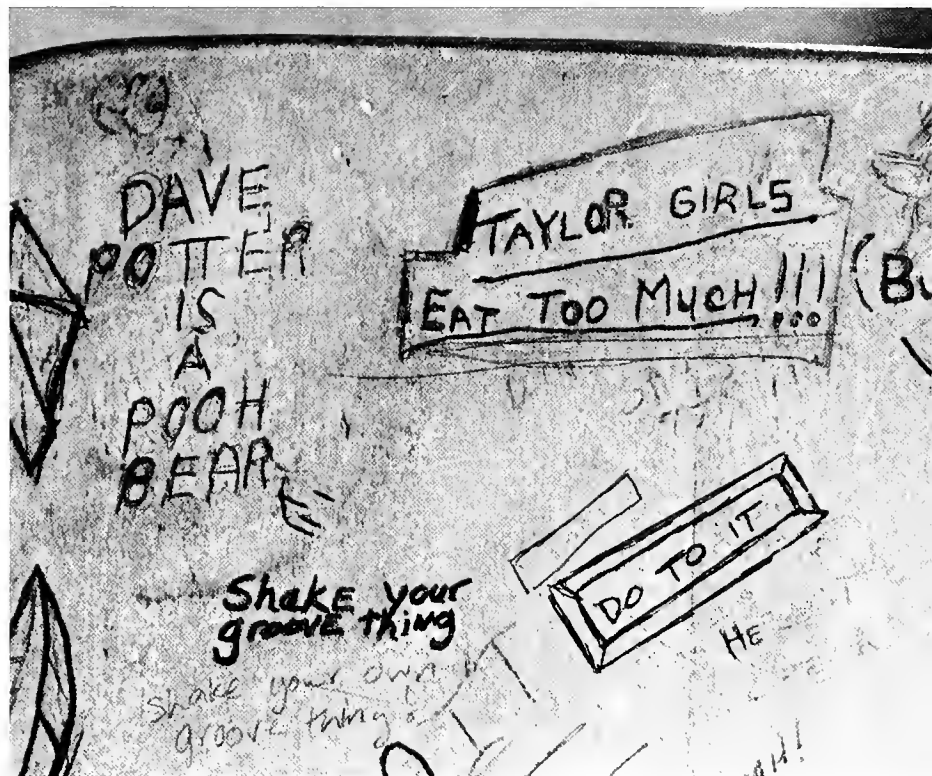 DAVE
POTTER
IS
A
POOH
BEAR
TAYLOR GIRLS
EAT TOO MUCH!!!
(BU
DO TO IT
HE
Shake your
groove thing
Shake your own
groove thing!